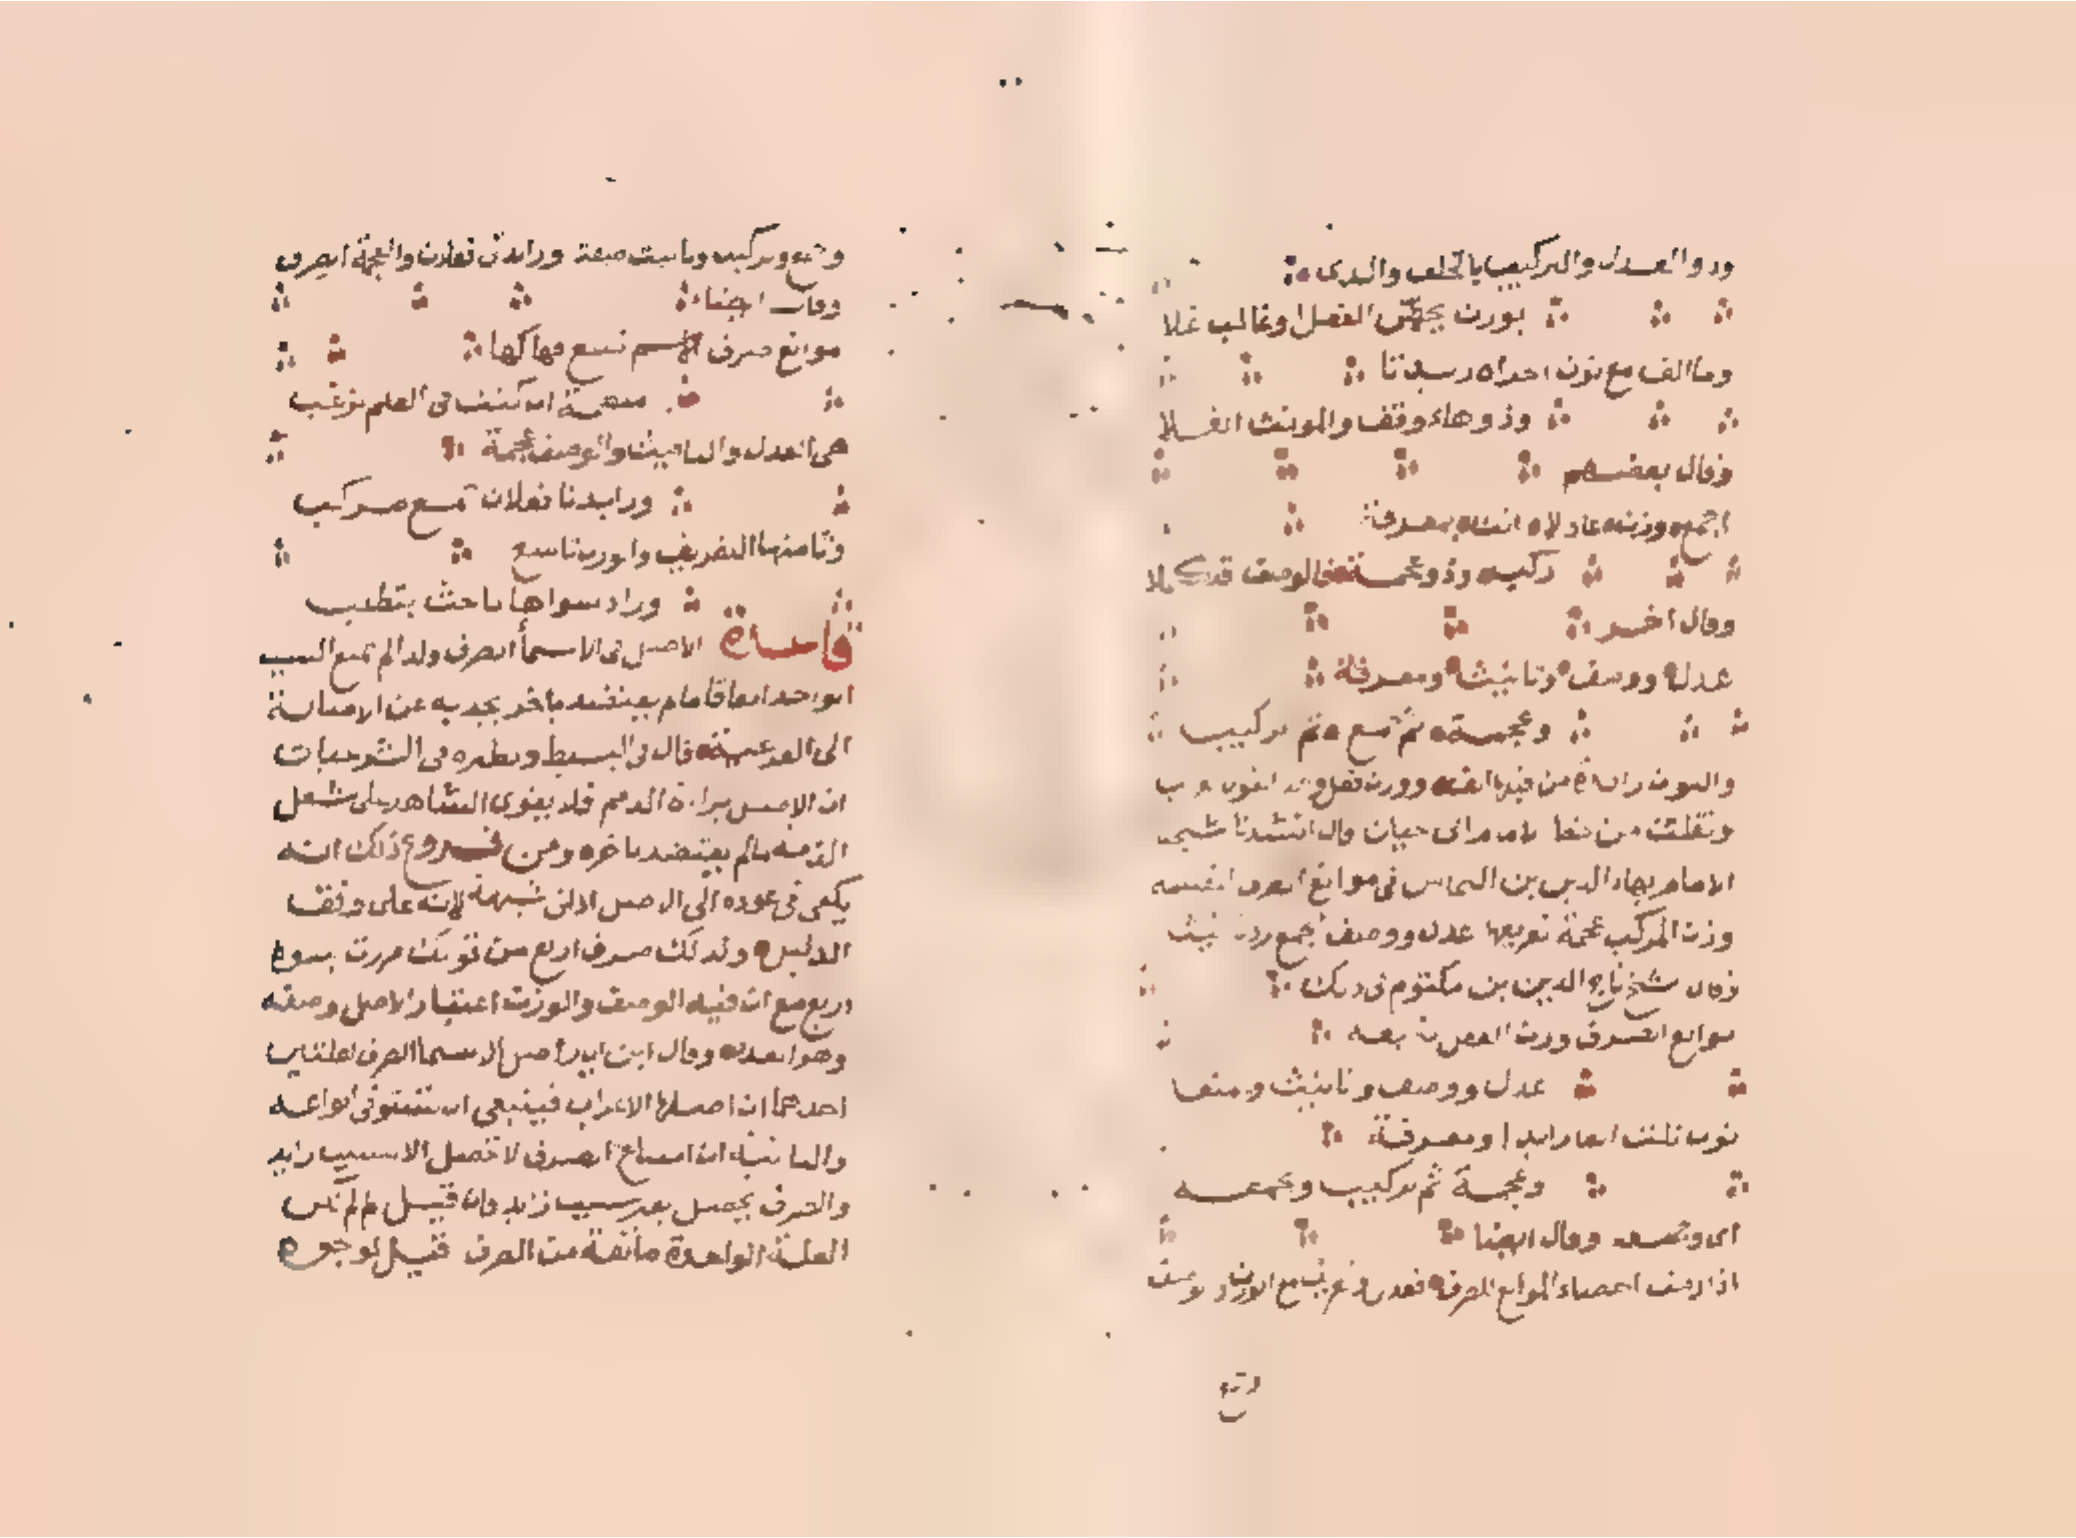 وذو العدل والتركيب بالخلف والذي
بوزن يخص الفعل او غالب علا
وما الف مع نون اخراه زيدتا
وذو هاء وقف والمونث اثقلا
وقال بعضهم
اجمع وزن عادلا انث بمعرفة
ركب وزد عجمة فالوصف قد كملا
وقال اخر
عدل ووصف وتانيث ومعرفة
وعجمة ثم جمع ثم تركيب
والنون زائدة من قبلها الف ووزن فعل
ونقلت من خط الامام ابي حيان قال انشدنا شيخنا
الامام بهاء الدين بن النحاس في موانع الصرف لنفسه
وزن المركب عجمة تعريفها عدل ووصف الجمع زد تانيث
وقال شيخ تاج الدين بن مكتوم في ذلك
موانع الصرف وزن الفعل تتبعه
عدل ووصف وتانيث ويمنعه
نون تلت الفا زايدا ومعرفة
وعجمة ثم تركيب ومجمعه
اي وجمعه وقال ايضا
اذا رمت احصاء الموانع للصرف فعدل وتعريف مع الوزن والوصف
وجمع وتركيب وتانيث صيغة وزايدتي فعلان والعجمة الصرف
وقال ايضا
موانع صرف الاسم تسع فهاكها
منقحة ان كنت في العلم ترغب
هي العدل والتانيث والوصف عجمة
وزايدتا فعلان جمع مركب
وثامنها التعريف والوزن تاسع
وزاد سواها باحث يتطلب
قاعدة الاصل في الاسماء الصرف ولذا لم يمنع السبب
الواحد اتفاقا ما لم يعتضد باخر يجذبه عن الاصالة
الى الفرعية قال في البسيط ونظيره في الشرعيات
ان الاصل براءة الذمة فلم يقوى الشاهد على شغل
الذمة ما لم يعتضد باخر ومن فروع ذلك انه
يكفي في عوده الى الاصل ادنى شبهة لانه على وفق
الدليل ولذلك صرف اربع من قولك مررت بنسوة
اربع مع ان فيه الوصف والوزن اعتبارا لاصل وصفه
وهو العدد وقال ابن اياز اصل الاسماء الصرف لعلتين
احدهما ان اصلها الاعراب فينبغي ان تستوفي انواعه
والثانية ان امتناع الصرف لا تحصل الا بسبب زايد
والصرف يحصل بغير سبب زايد فان قيل لم لم تكن
العلة الواحدة مانعة من الصرف قيل لوجوه